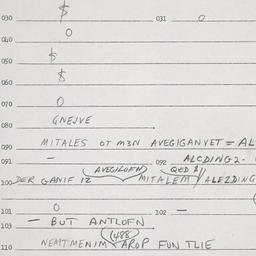 030 $ 031 0
040 0
050 $
060 $
070 0
080 GNEJVE
090 MITALES OT M3N AVEGIGANVET = AL
091 — 092 ALCDING2-
AVEGILOFN QED
100 DER GANIF 12 MITALEM ALE2DING
101 0 102 —
103 — BUT ANTLOFN
(488)
110 NEMTMENIM AROP FUN TLIE